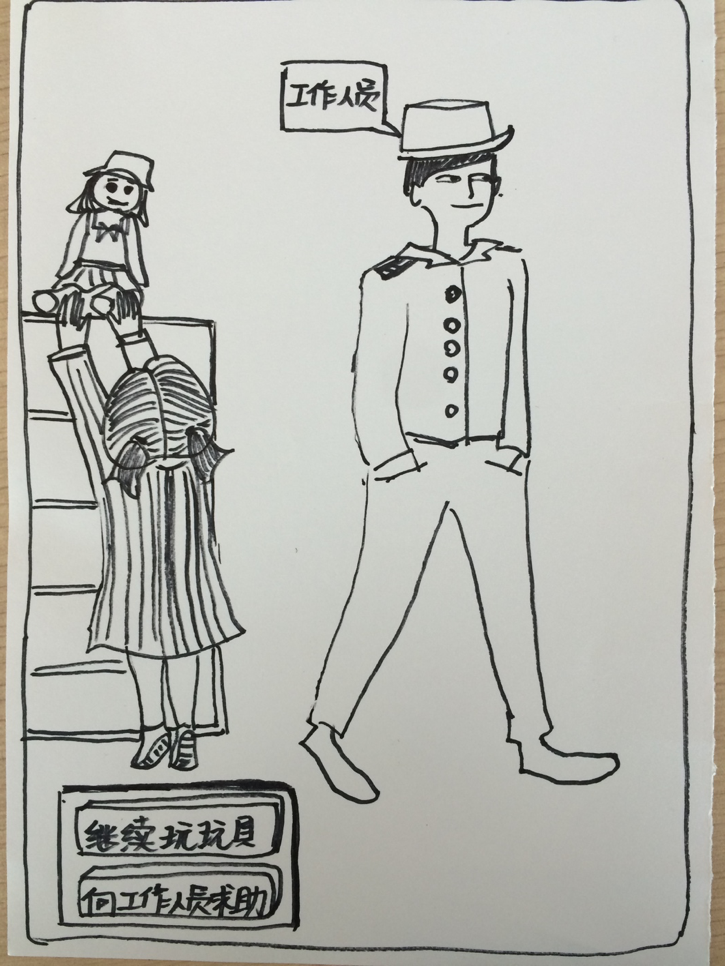 工作人员
继续玩玩具
向工作人员求助